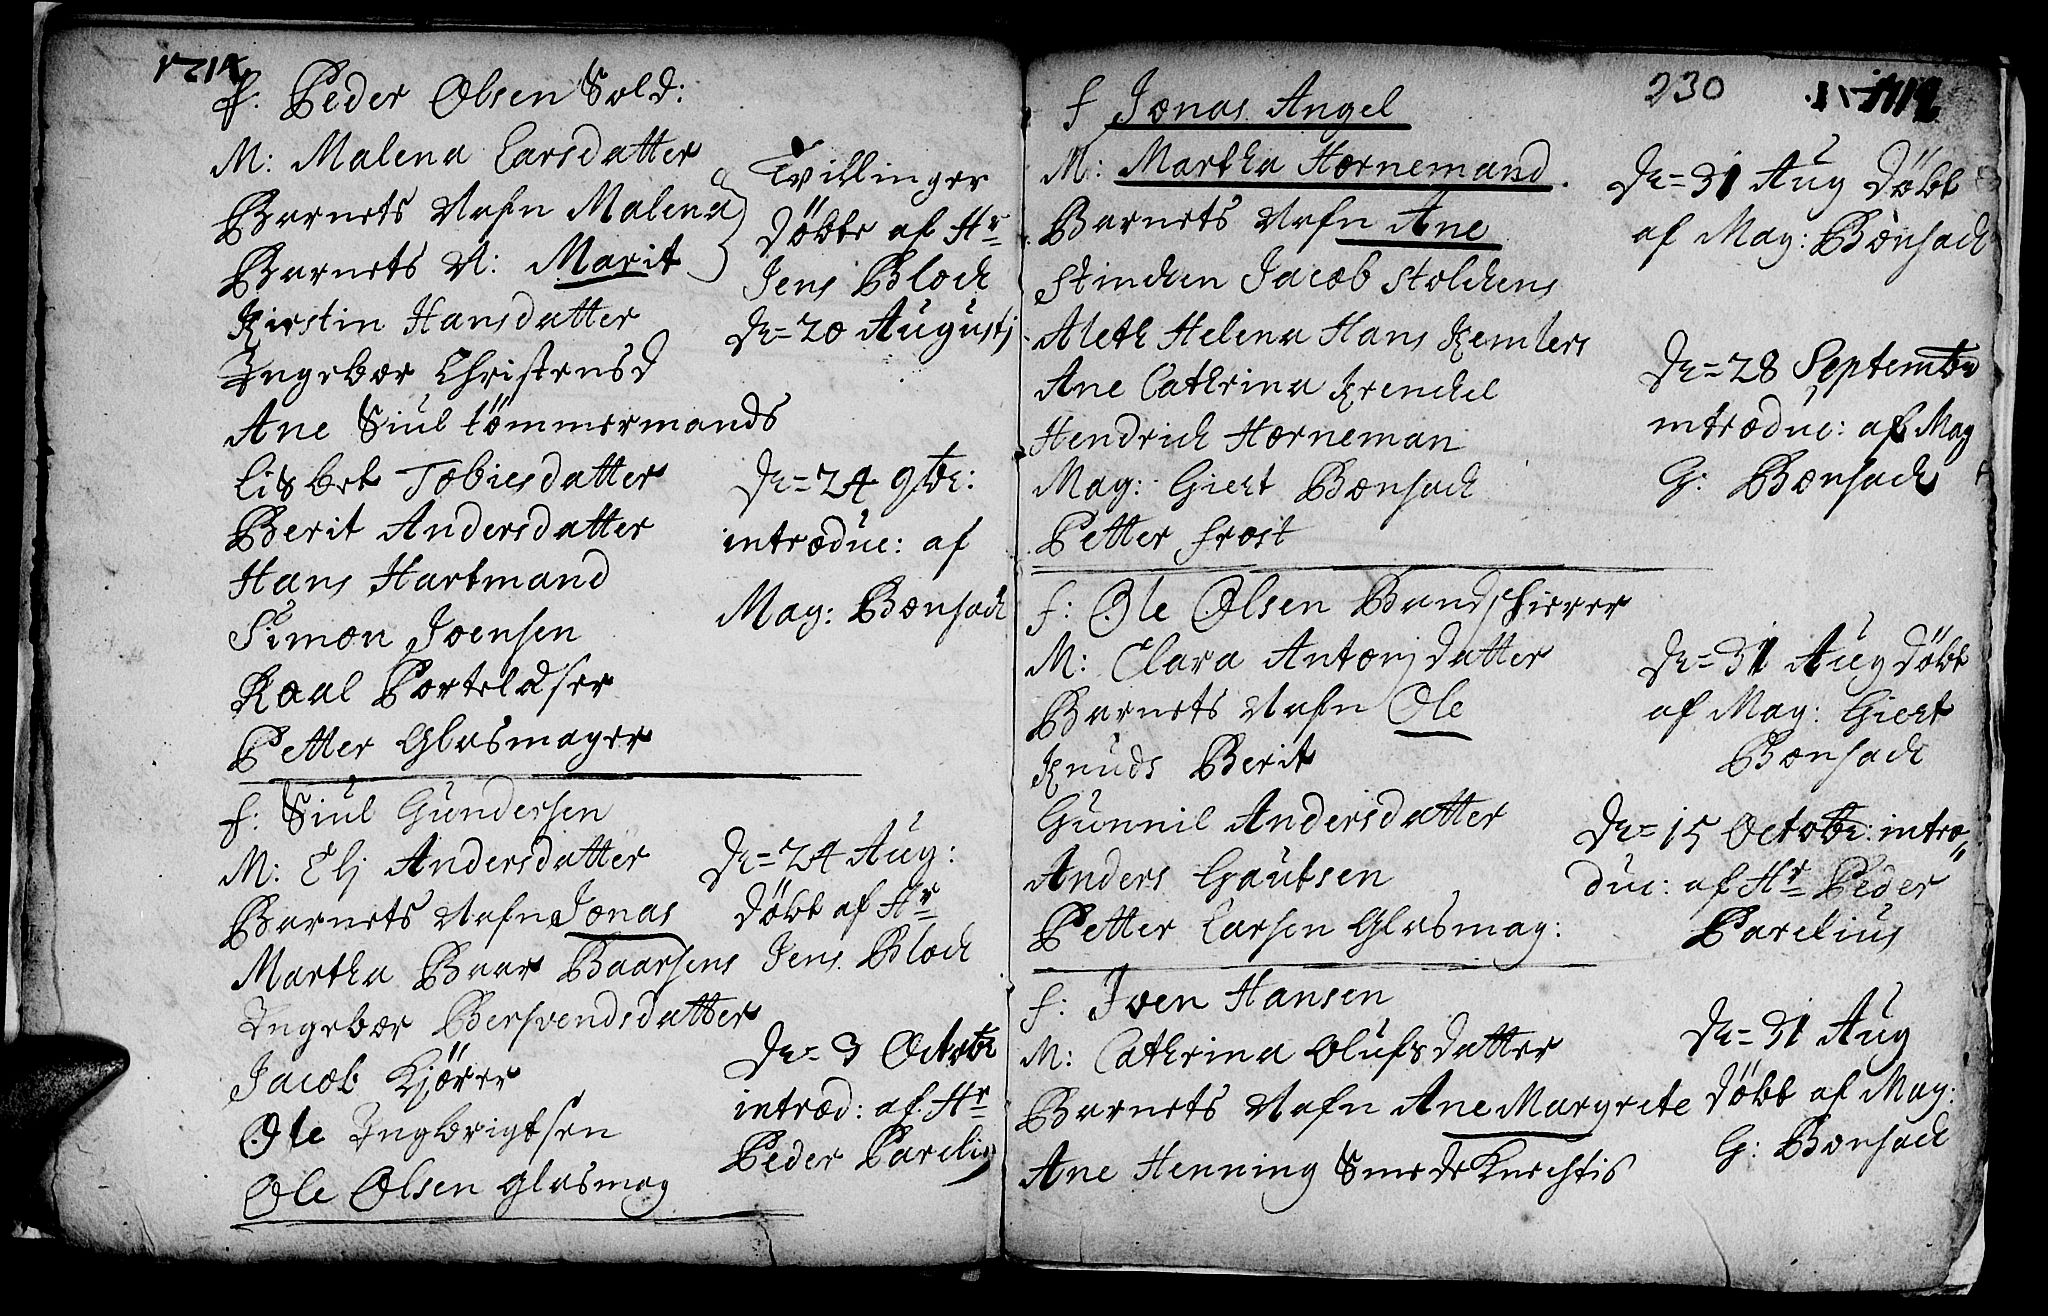 f: Peder Olsen Sold:
M: Malena Larsdatter
Barnets Nafn Malena
Barnets N: Marit
Kirstin Hansdatter
Ingebor Christensd
Ane Siul tömmermands
Lisbet Tobiesdatter
Berit Andersdatter
Hans Hartmand
Simon Joensen
Roal Portelæser
Petter Glasmager
Tvillinger
döbte af Hr
Jens Bloch
D= 20 Augustj
D= 24 9br:
introduc: af
Mag: Bonsach
f: Siul Gundersen
M: Elj Andersdatter
Barnets Nafn Jonas
Martha Baar Baarsens
Ingebor Bersvendsdatter
Jacob Kjörer
Ole Ingbrigtsen
Ole Olsen glasmag
D= 24 Aug:
döbt af Hr
Jens Bloch
D= 3 Octobr
introd: af Hr
Peder Parelij
230
f Jonas Angel
M: Martha Hornemand.
Barnets Nafn Ane
Stinchen Jacob Stolchens
Aleth Helena Hans Kemlers
Ane Cathrina Krenchel
Hendrich Horneman
Mag: Giert Bonsach
Petter frost
D= 31 Aug döbt
af Mag: Bonsach
D= 28 Septembr
introduc: af Mag
G: Bonsach
f: Ole Olsen Bandschierer
M: Clara Antonjdatter
Barnets Nafn Ole
Knuds Berit
Gunnil Andersdatter
Anders Gautsen
Petter Larsen Glasmag:
D= 31 Aug döbt
af Mag: Giert
Bonsach
D= 15 Octobr: intro
duc: af Hr Peder
Parelius
f: Joen Hansen
M: Cathrina Olufsdatter
Barnets Nafn Ane Margrete
Ane Henning Smedeknechtis
D= 31 Aug
döbt af Mag:
G: Bonsach